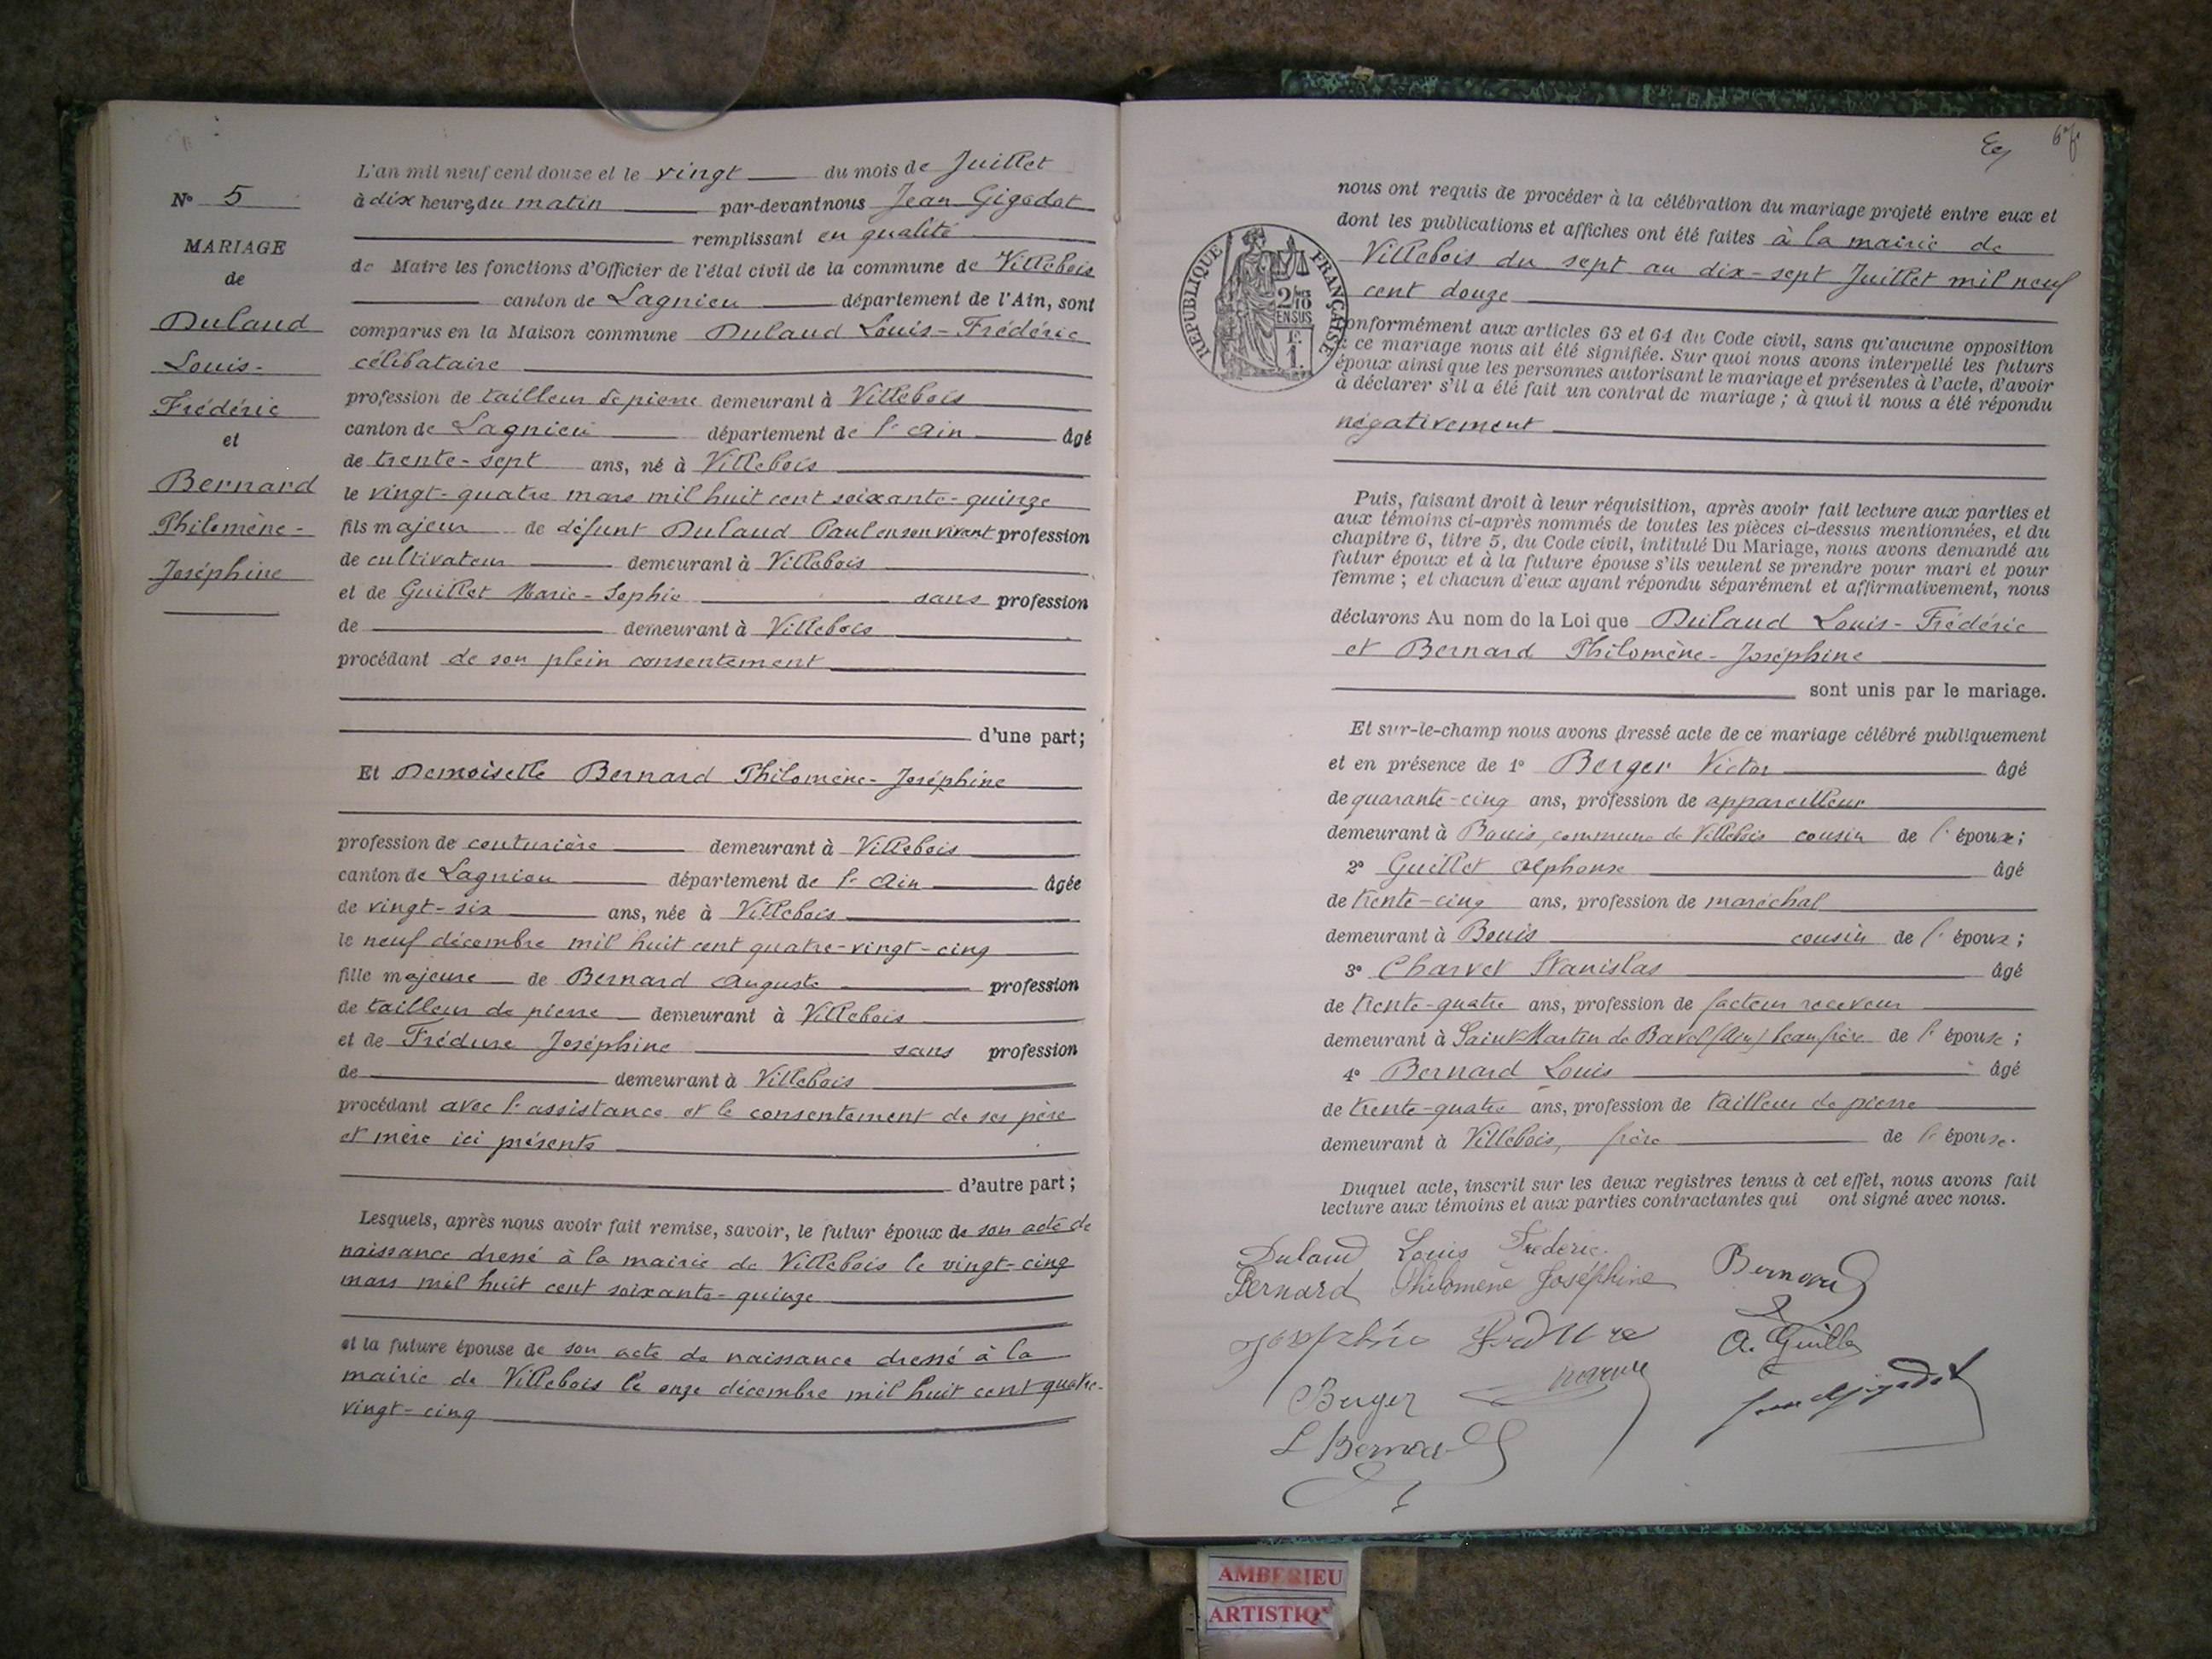 N° 5
MARIAGE
de
Dulaud
Louis-
Frédéric
et
Bernard
Philomène-
Joséphine
L'an mil neuf cent douze et le vingt du mois de Juillet
à dix heures du matin par-devant nous Jean Gigodot
remplissant en qualité
de Maire les fonctions d'Officier de l'état civil de la commune de Villebois
canton de Lagnieu département de l'Ain, sont
comparus en la Maison commune Dulaud Louis-Frédéric
célibataire
profession de tailleur de pierre demeurant à Villebois
canton de Lagnieu département de l'Ain âgé
de trente-sept ans, né à Villebois
le vingt-quatre mars mil huit cent soixante-quinze
fils majeur de défunt Dulaud Paul en son vivant profession
de cultivateur demeurant à Villebois
et de Guillet Marie-Sophie sans profession
de demeurant à Villebois
procédant de son plein consentement
d'une part;
Et Demoiselle Bernard Philomène-Joséphine
profession de couturière demeurant à Villebois
canton de Lagnieu département de l'Ain âgée
de vingt-six ans, née à Villebois
le neuf décembre mil huit cent quatre-vingt-cinq
fille majeure de Bernard Auguste profession
de tailleur de pierre demeurant à Villebois
et de Frédure Joséphine sans profession
de demeurant à Villebois
procédant avec l'assistance et le consentement de ses père
et mère ici présents
d'autre part;
Lesquels, après nous avoir fait remise, savoir, le futur époux de son acte de
naissance dressé à la mairie de Villebois le vingt-cinq
mars mil huit cent soixante-quinze
et la future épouse de son acte de naissance dressé à la
mairie de Villebois le onze décembre mil huit cent quatre-
vingt-cinq
nous ont requis de procéder à la célébration du mariage projeté entre eux et
dont les publications et affiches ont été faites à la mairie de
Villebois du sept au dix-sept Juillet mil neuf
cent douze
RÉPUBLIQUE FRANÇAISE
2/10 EN SUS
1 F.
conformément aux articles 63 et 64 du Code civil, sans qu'aucune opposition
à ce mariage nous ait été signifiée. Sur quoi nous avons interpellé les futurs
époux ainsi que les personnes autorisant le mariage et présentes à l'acte, d'avoir
à déclarer s'il a été fait un contrat de mariage; à quoi il nous a été répondu
négativement
Puis, faisant droit à leur réquisition, après avoir fait lecture aux parties et
aux témoins ci-après nommés de toutes les pièces ci-dessus mentionnées, et du
chapitre 6, titre 5, du Code civil, intitulé Du Mariage, nous avons demandé au
futur époux et à la future épouse s'ils veulent se prendre pour mari et pour
femme; et chacun d'eux ayant répondu séparément et affirmativement, nous
déclarons Au nom de la Loi que Dulaud Louis-Frédéric
et Bernard Philomène-Joséphine
sont unis par le mariage.
Et sur-le-champ nous avons dressé acte de ce mariage célébré publiquement
et en présence de 1° Berger Victor âgé
de quarante-cinq ans, profession de appareilleur
demeurant à Bouis, commune de Villebois cousin de l'époux;
2° Guillet Alphonse âgé
de trente-cinq ans, profession de maréchal
demeurant à Bouis cousin de l'époux;
3° Charvet Stanislas âgé
de trente-quatre ans, profession de facteur receveur
demeurant à Saint-Martin de Bavel (Ain) beau frère de l'épouse;
4° Bernard Louis âgé
de trente-quatre ans, profession de tailleur de pierre
demeurant à Villebois, frère de l'épouse.
Duquel acte, inscrit sur les deux registres tenus à cet effet, nous avons fait
lecture aux témoins et aux parties contractantes qui ont signé avec nous.
Dulaud Louis Frédéric
Bernard Philomène Joséphine Bernard
Joséphine Fredure A. Guillet
Berger Jean Gigodot
L Bernard
AMBERIEU
ARTISTIQ